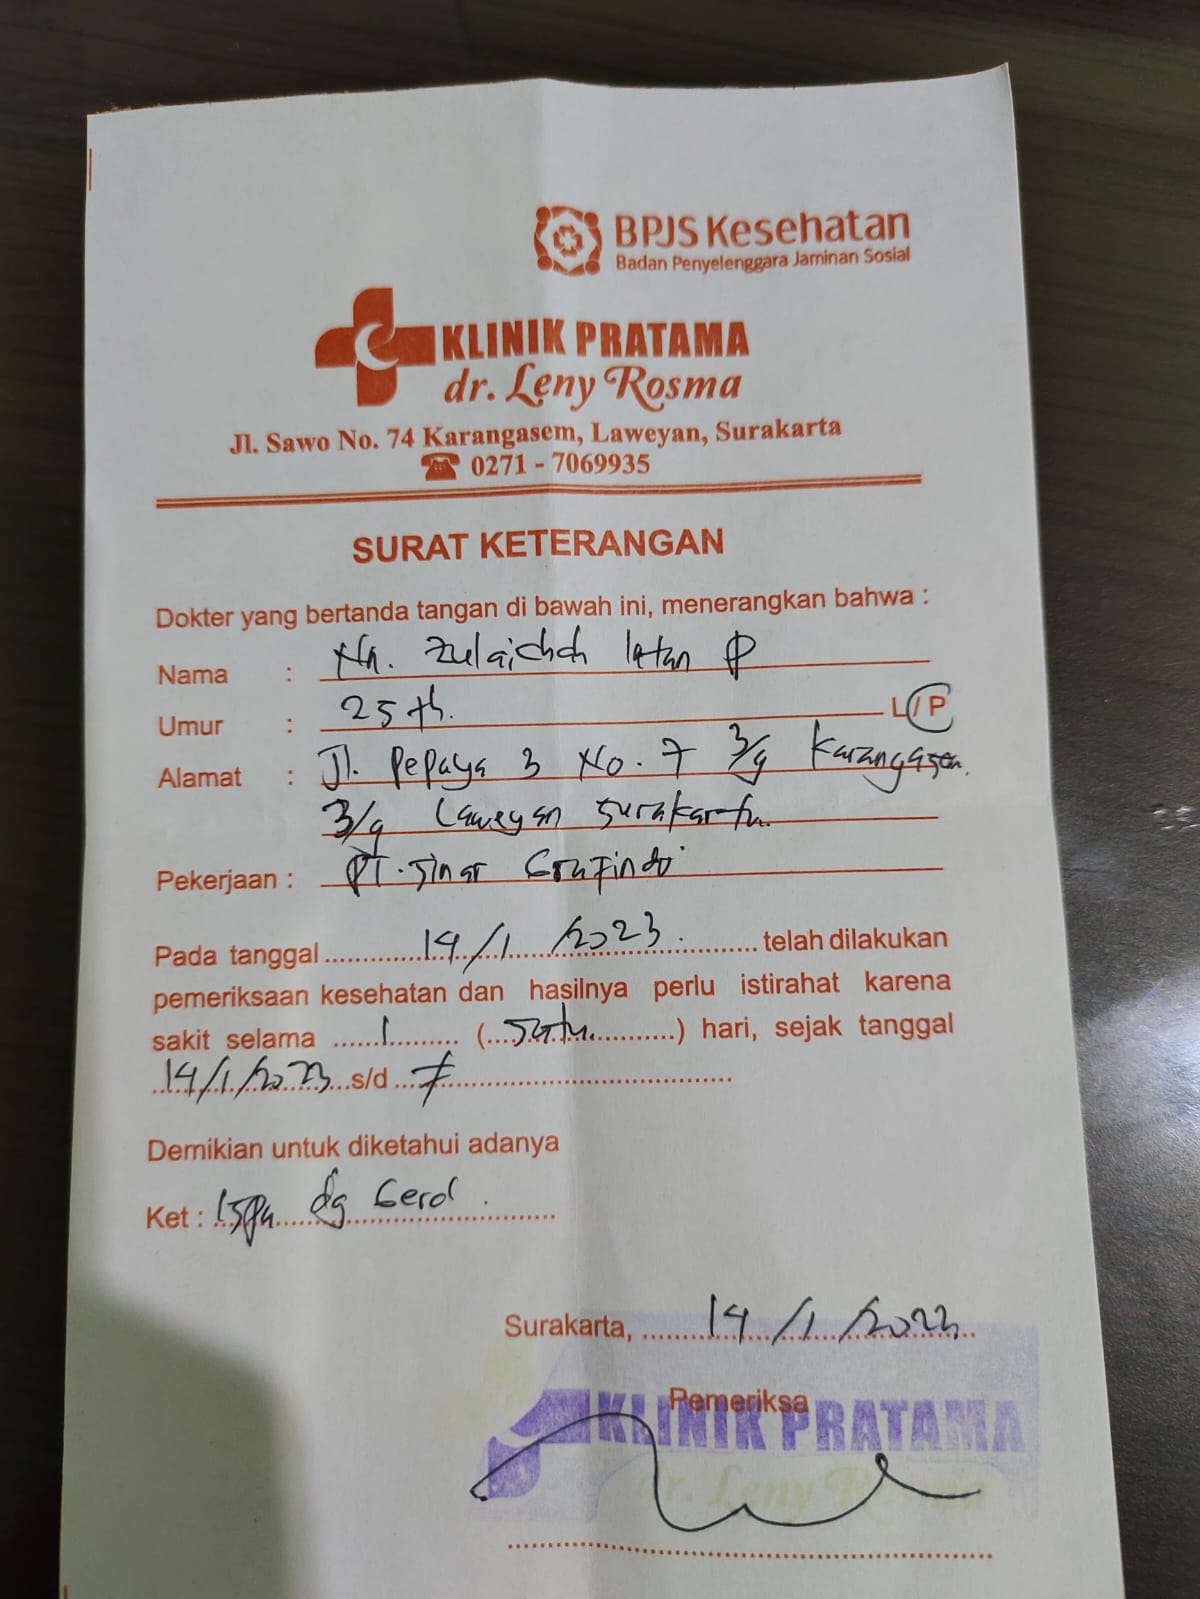 BPJS Kesehatan
Badan Penyelenggara Jaminan Sosial
KLINIK PRATAMA
dr. Leny Rosma
Jl. Sawo No. 74 Karangasem, Laweyan, Surakarta
☎ 0271 - 7069935
SURAT KETERANGAN
Dokter yang bertanda tangan di bawah ini, menerangkan bahwa :
Nama : Nn. Zulaichah Intan P
Umur : 25 th. L / P
Alamat : Jl. Pepaya 3 No. 7 3/9 Karangasem.
3/9 Laweyan Surakarta.
Pekerjaan : PT. Sinar Grafindo
Pada tanggal 14/1/2023. telah dilakukan
pemeriksaan kesehatan dan hasilnya perlu istirahat karena
sakit selama 1 (Satu) hari, sejak tanggal
14/1/2023 s/d
Demikian untuk diketahui adanya
Ket : Ispa dg Gerd.
Surakarta, 14/1/2023
Pemeriksa
KLINIK PRATAMA
dr. Leny Rosma